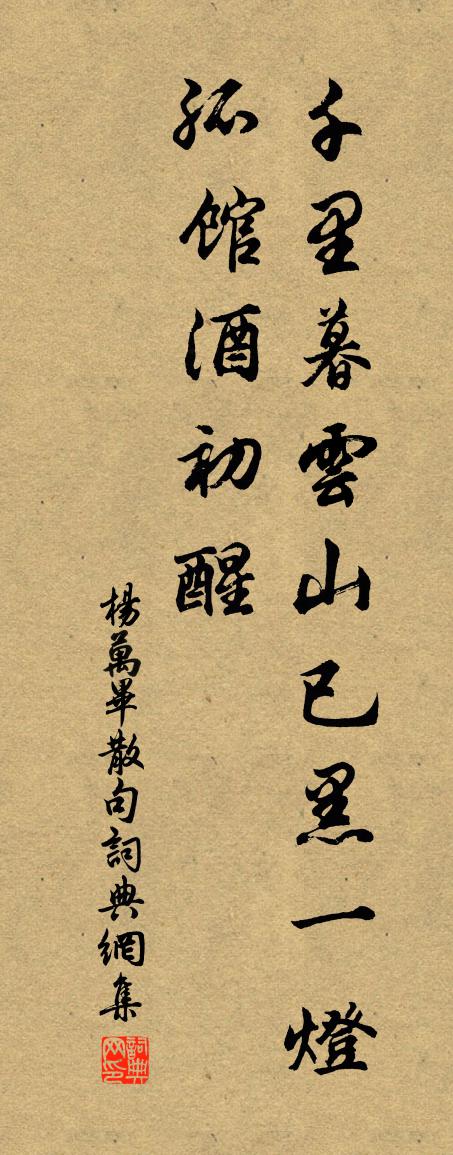 千里暮雲山已黑一燈
孤館酒初醒
楊萬畢散句詞典網集
詞典网印